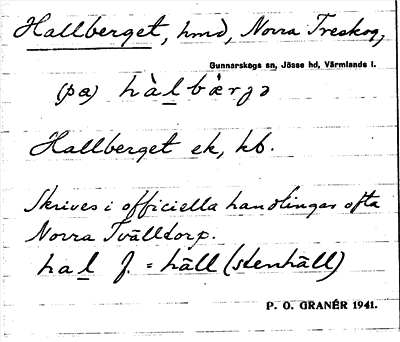 Hallberget, hmd, Norra Treskog,
Gunnarskogs sn, Jösse hd, Värmlands l.
(pa) hàlbærjə
Hallberget ek, kb.
Skrives i officiella handlingar ofta
Norra Tvälldorp.
hal f. = häll (stenhäll)
P. O. GRANÉR 1941.